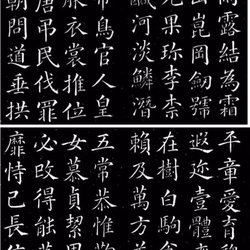 雨露結為霜
出崑岡劍號
光果珍李柰
鹹河淡鱗潛
帝鳥官人皇
服衣裳推位
唐弔民伐罪
朝問道垂拱
平章愛育
遐邇壹體
在樹白駒食
賴及萬方蓋
五常恭惟鞠
女慕貞絜男
必改得能莫
靡恃己長信